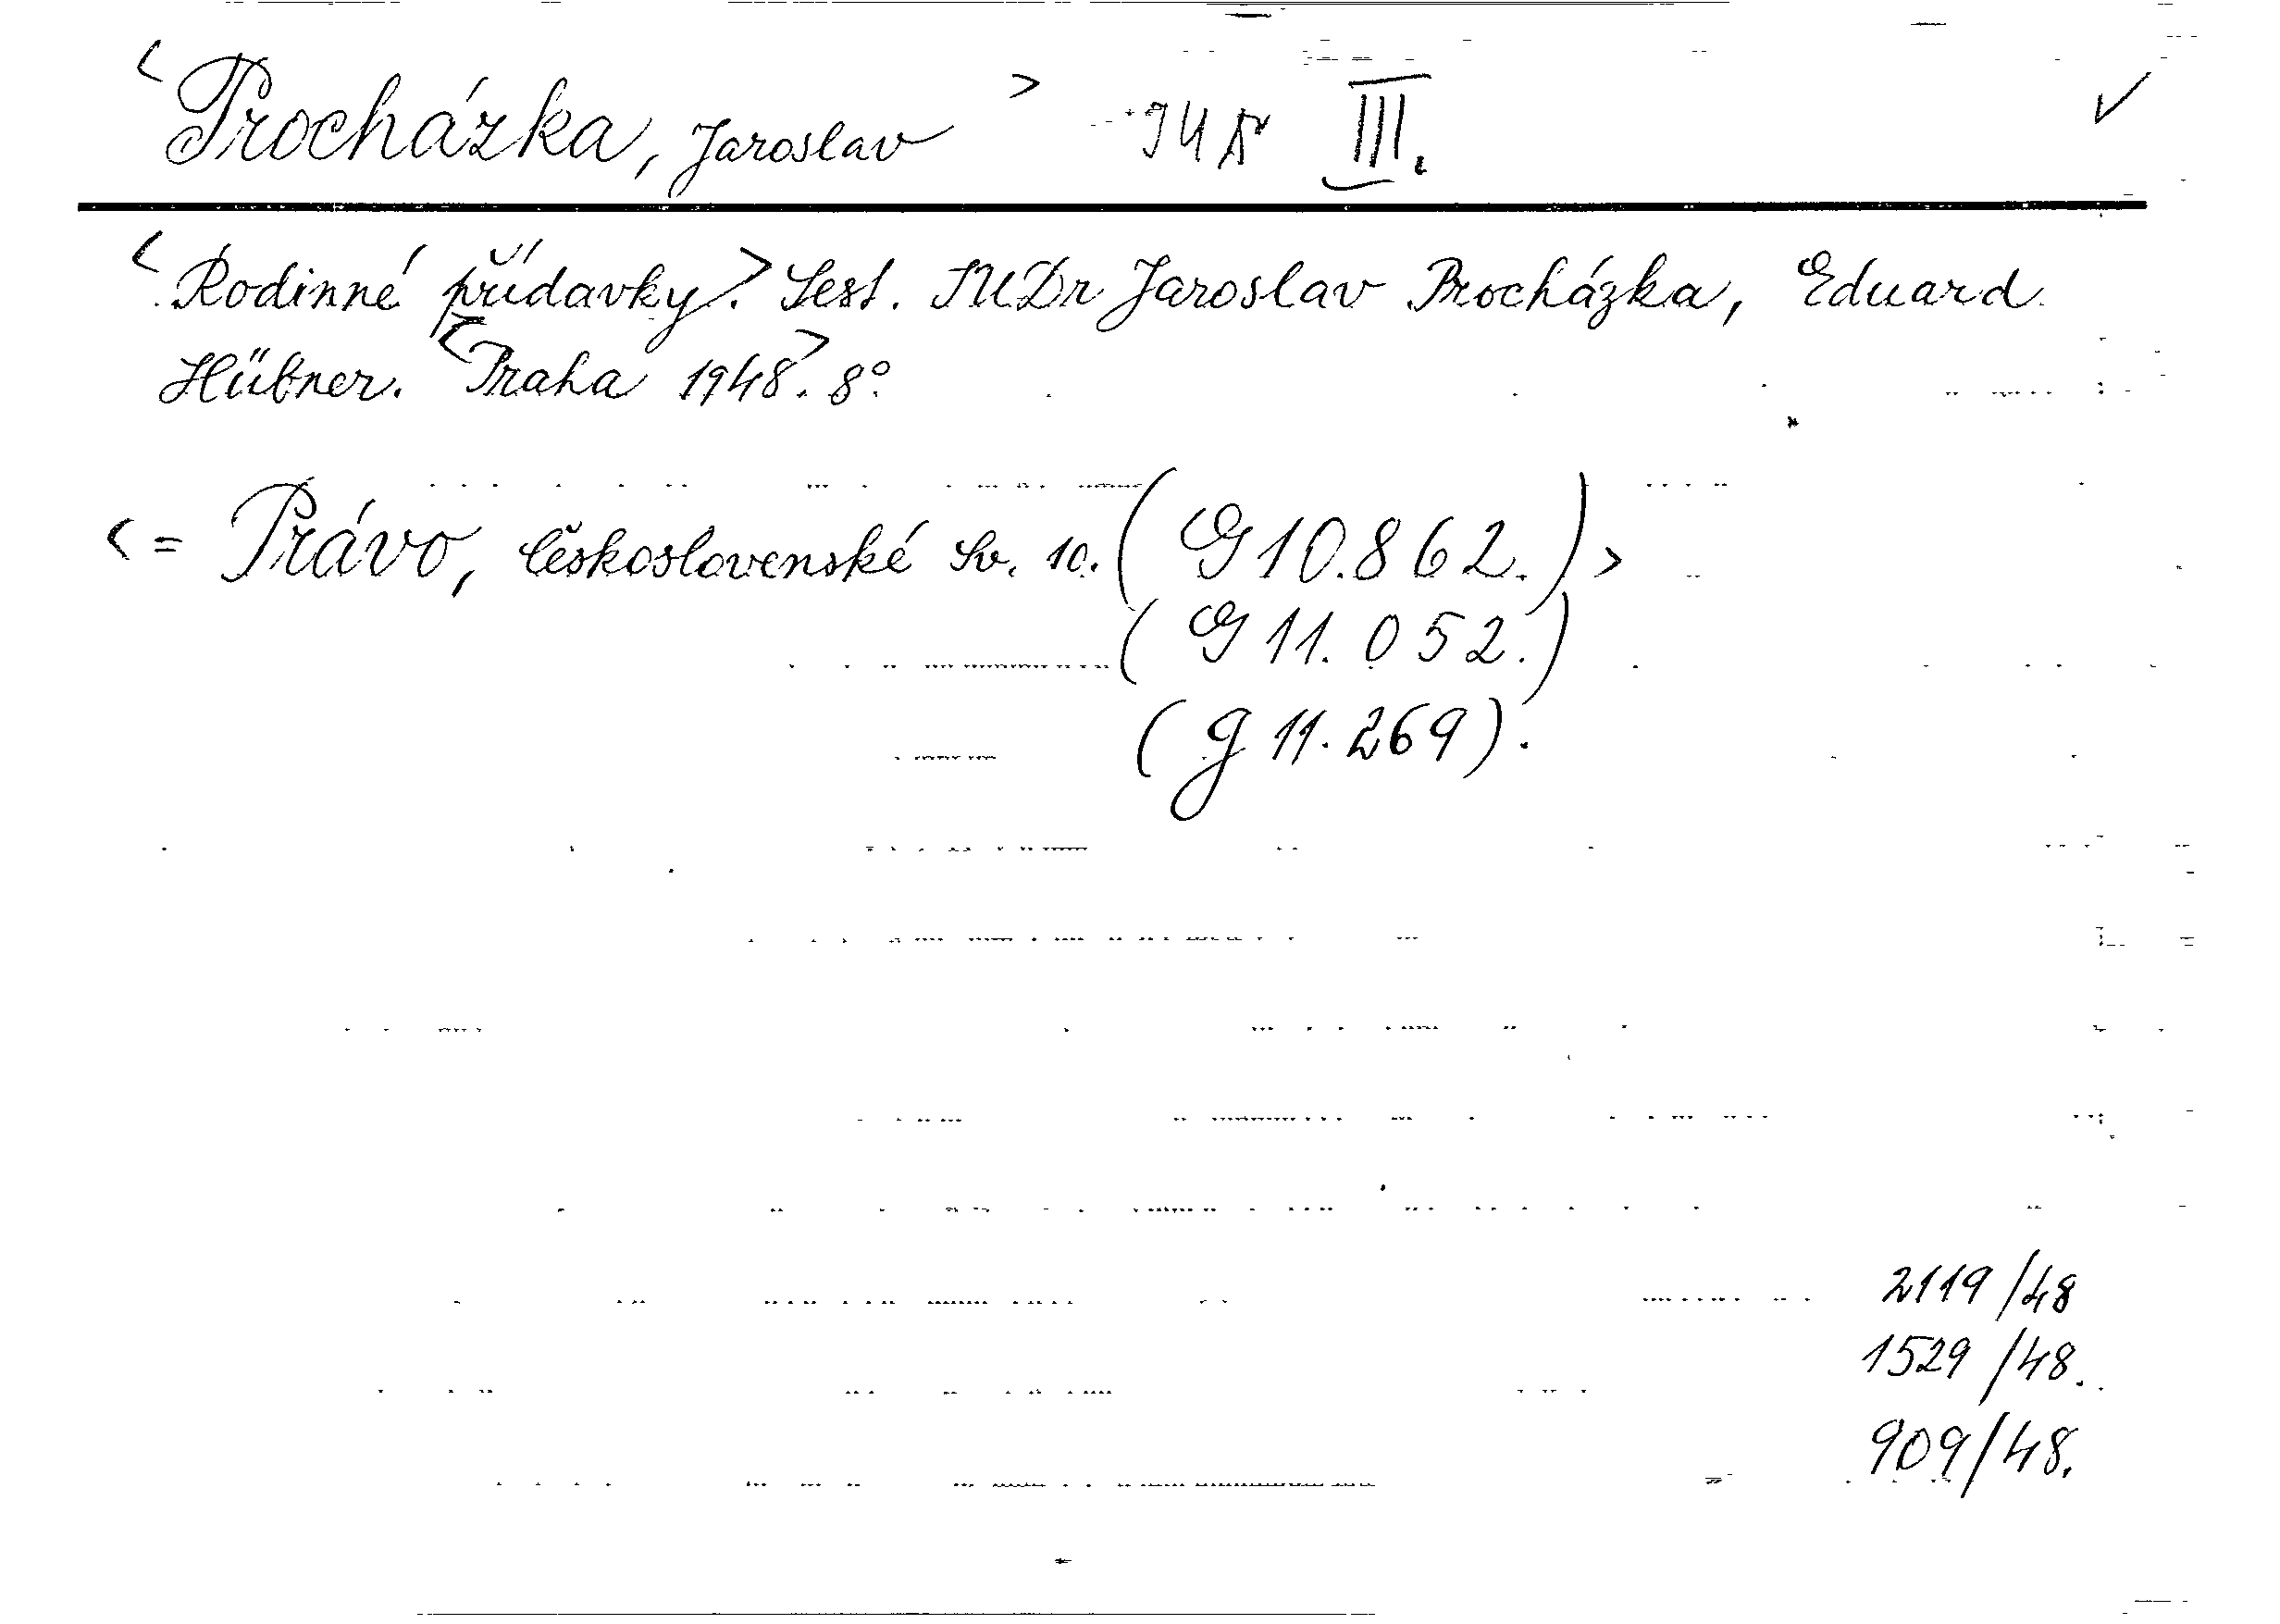 <Procházka, Jaroslav> JUDr III. ✓
<Rodinné přídavky.> Sest. JUDr Jaroslav Procházka, Eduard
Hübner. <Praha 1948>. 8°.
<= Právo, československé Sv. 10. (G 10.862.)>
(G 11.052.)
(g 11.269).
2119/48
1529/48.
909/48.